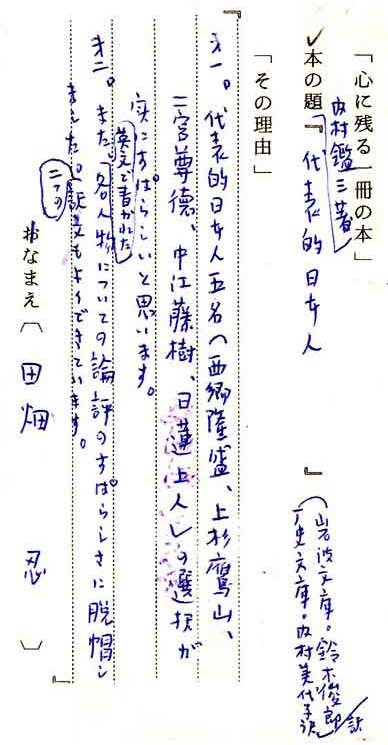 「心に残る一冊の本」
内村鑑三著
本の題『代表的日本人』
(岩波文庫。鈴木俊郎訳
文庫。内村美代子訳)
「その理由」
『
才一。代表的日本人五名(西郷隆盛、上杉鷹山、
二宮尊徳、中江藤樹、日蓮上人)の選択が
実にすばらしいと思います。
英文で書かれた
才二。また、各人物についての論評のすばらしさに脱帽し
ました。二つの訳文もよくできています。
』
おなまえ〔 田畑 忍 〕